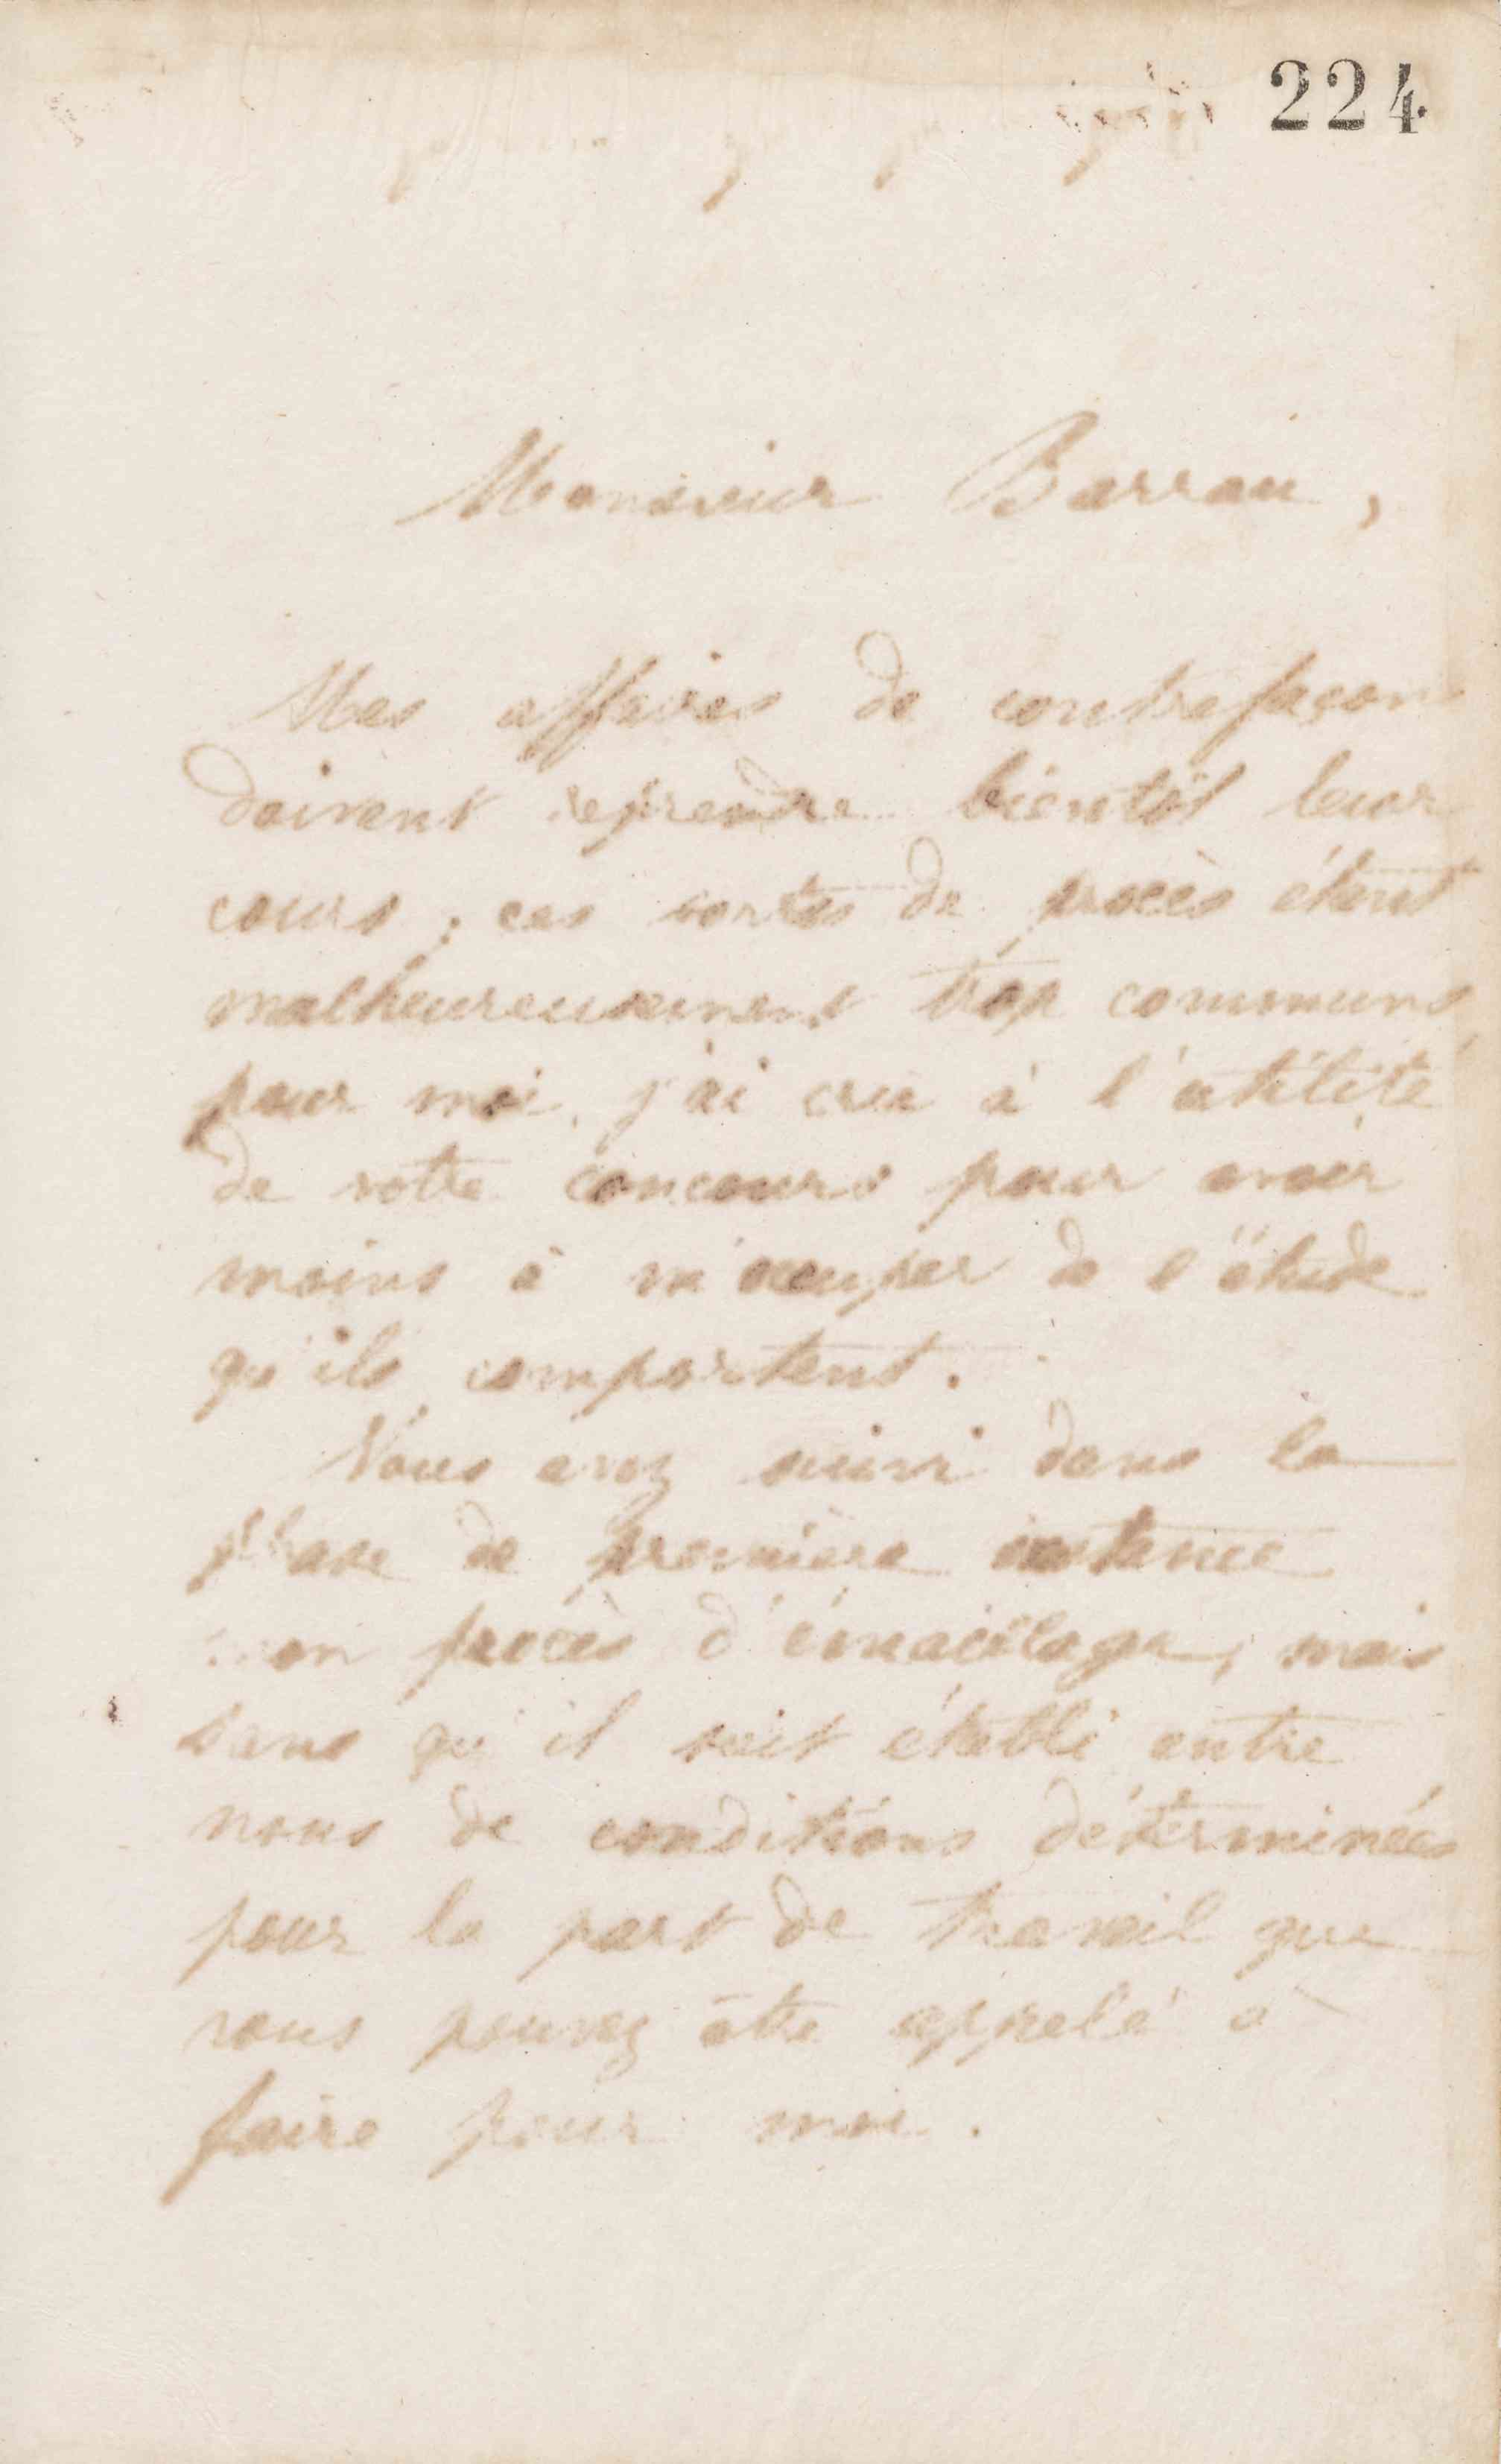 224
Monsieur Barrau,
Mes affaires de contrefaçons
doivent reprendre bientôt leur
cours ; ces sortes de procès étant
malheureusement trop communs
pour moi, j'ai cru à l'utilité
de votre concours pour avoir
moins à m'occuper de l'étude
qu'ils comportent.
Vous avez suivi dans la
phase de première instance
mon procès d'émaillage, mais
sans qu'il soit établi entre
nous de conditions déterminées
pour la part de travail que
vous pouvez être appelé à
faire pour moi.